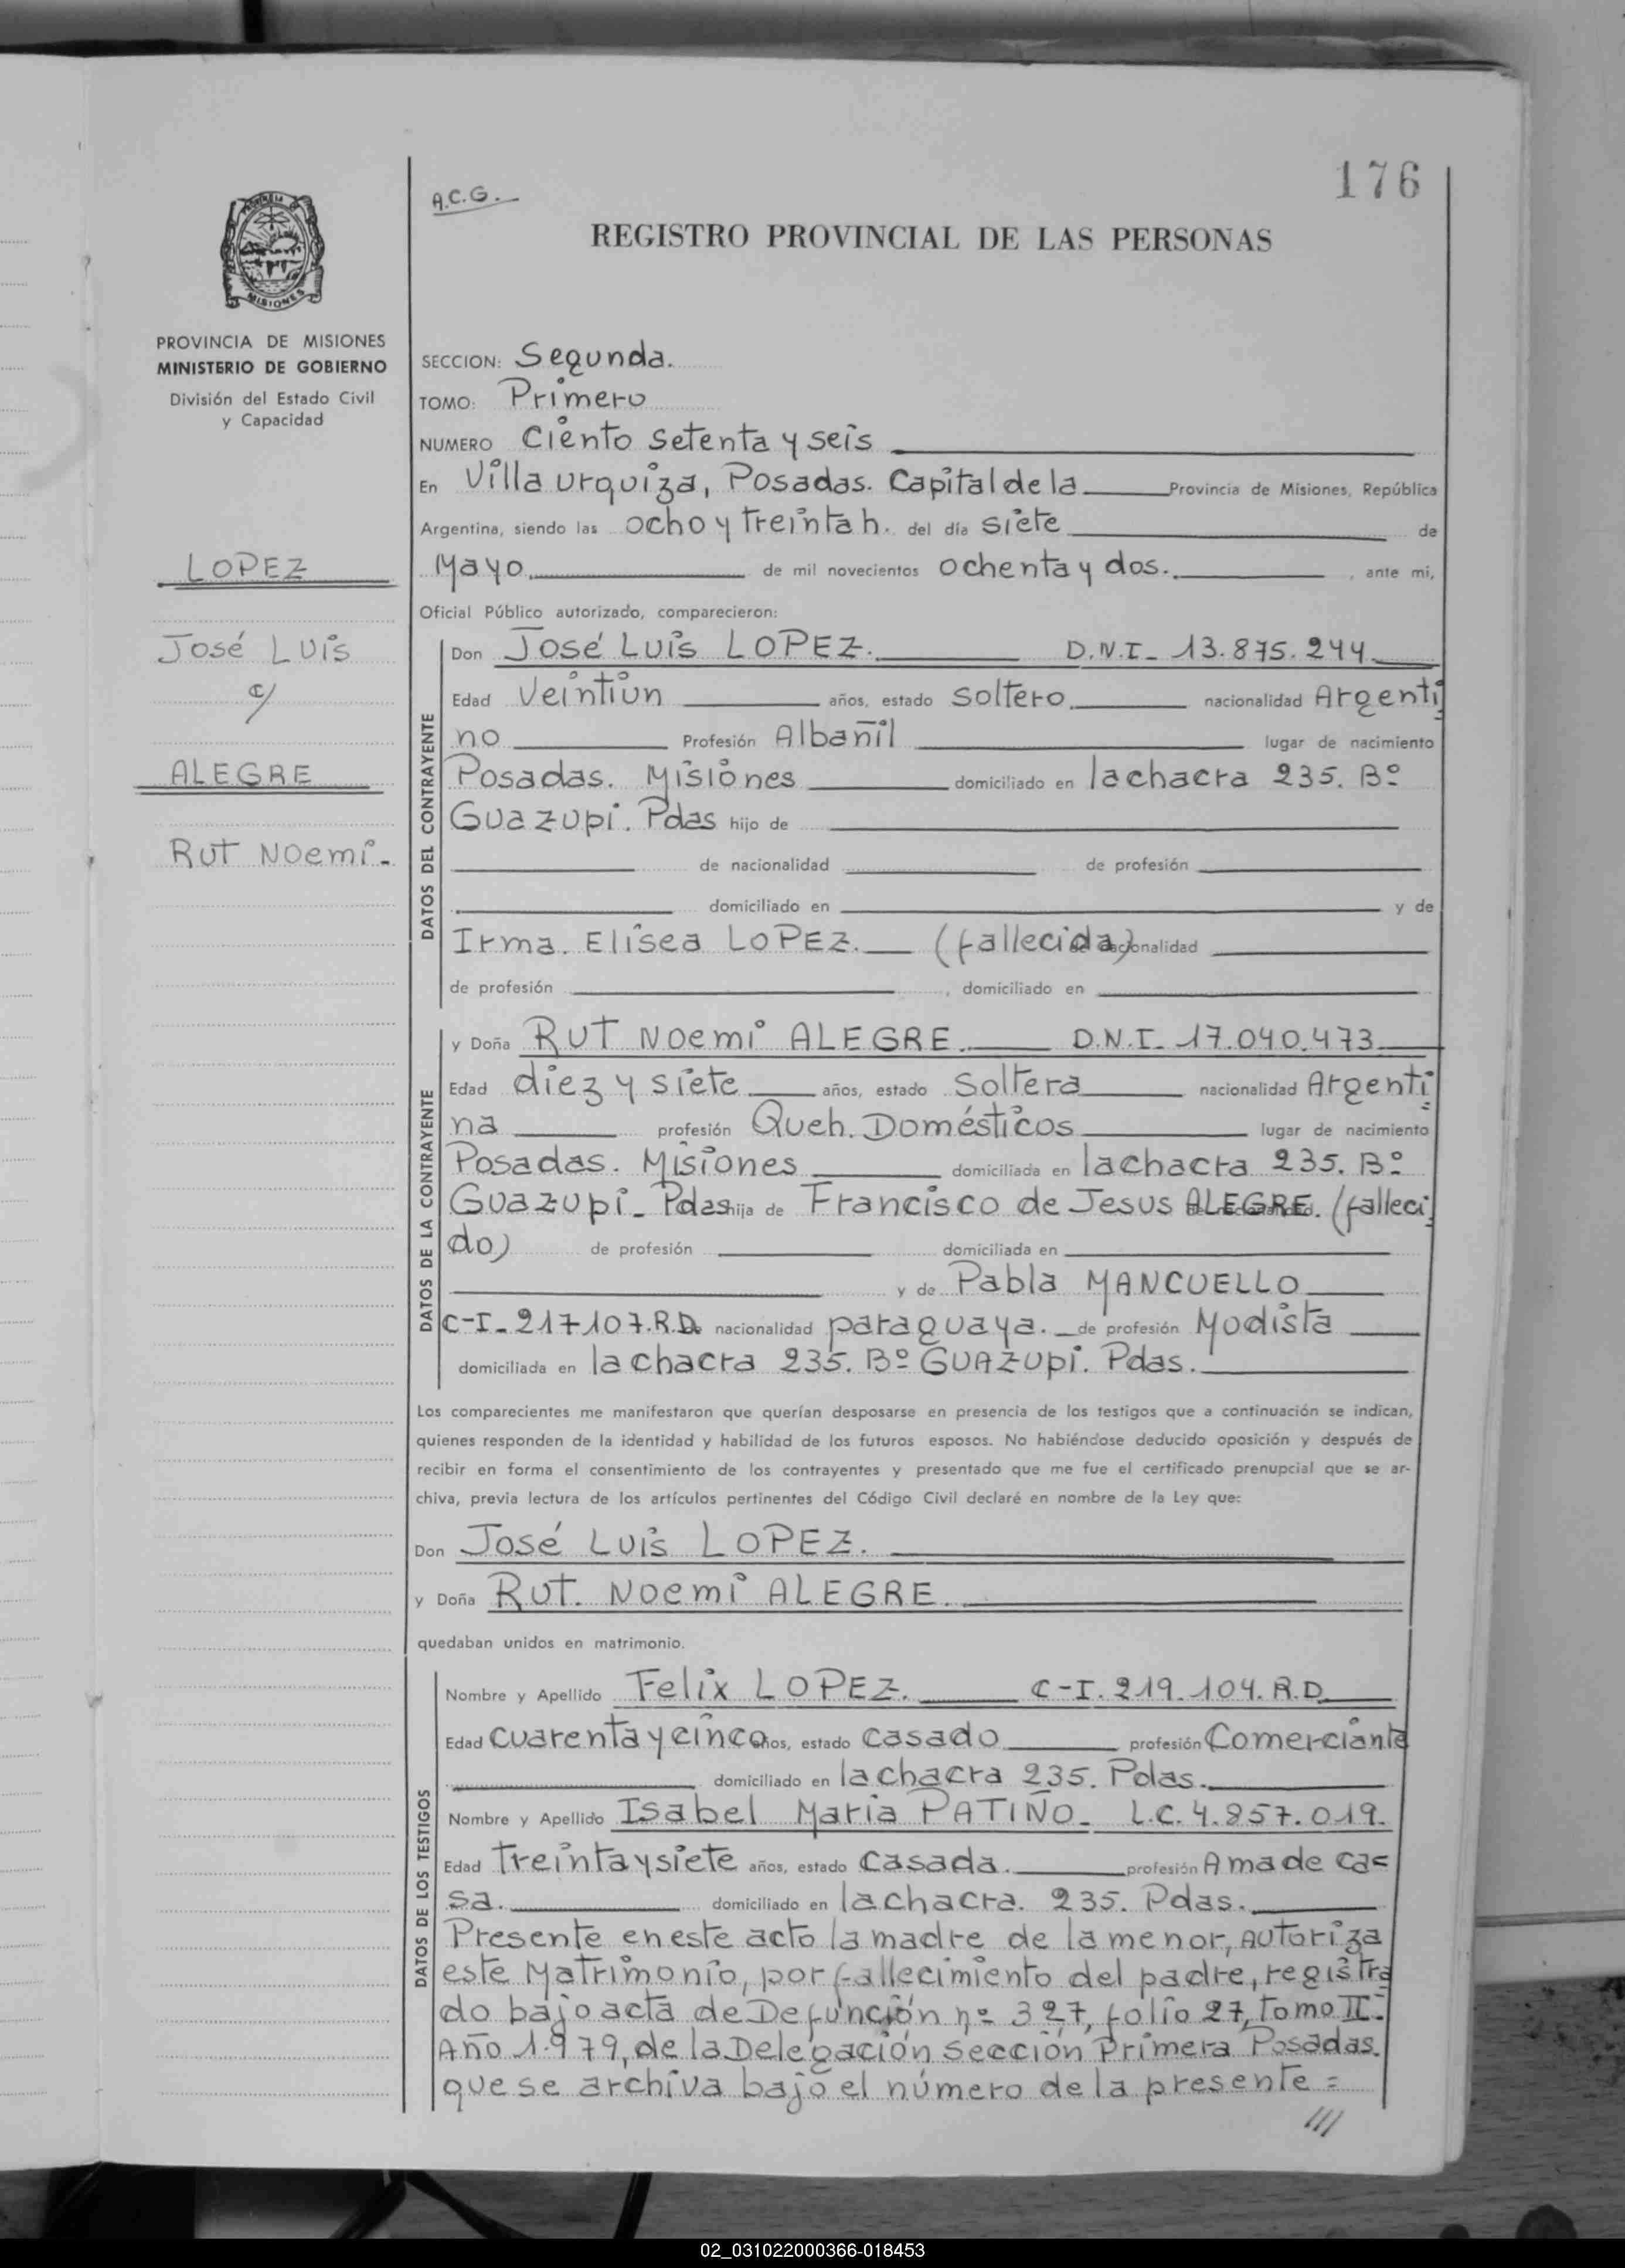 176
A.C.G.
REGISTRO PROVINCIAL DE LAS PERSONAS
PROVINCIA DE MISIONES
MINISTERIO DE GOBIERNO
División del Estado Civil
y Capacidad
LOPEZ
José Luis
c/
ALEGRE
Rut Noemi.
SECCION: Segunda.
TOMO: Primero
NUMERO Ciento setenta y seis
En Villa Urquiza, Posadas. Capital de la Provincia de Misiones, República
Argentina, siendo las ocho y treinta h. del día siete de
Mayo de mil novecientos ochenta y dos. , ante mi,
Oficial Público autorizado, comparecieron:
DATOS DEL CONTRAYENTE
Don José Luis LOPEZ. D.N.I- 13.875.244
Edad Veintiun años, estado soltero nacionalidad Argenti
no Profesión Albañil lugar de nacimiento
Posadas. Misiones domiciliado en la chacra 235. Bº
Guazupi. Pdas hijo de
de nacionalidad de profesión
domiciliado en y de
Irma. Elisea LOPEZ. (fallecida) nacionalidad
de profesión , domiciliado en
DATOS DE LA CONTRAYENTE
y Doña RUT Noemi ALEGRE. D.N.I- 17.040.473
Edad diez y siete años, estado Soltera nacionalidad Argenti
na profesión Queh. Domésticos lugar de nacimiento
Posadas. Misiones domiciliada en la chacra 235. Bº
Guazupi- Pdas hija de Francisco de Jesus ALEGRE. (falleci
do) de profesión domiciliada en
y de Pabla MANCUELLO
C-I-217107.R.D. nacionalidad paraguaya. de profesión Modista
domiciliada en la chacra 235. Bº Guazupi. Pdas.
Los comparecientes me manifestaron que querían desposarse en presencia de los testigos que a continuación se indican,
quienes responden de la identidad y habilidad de los futuros esposos. No habiéndose deducido oposición y después de
recibir en forma el consentimiento de los contrayentes y presentado que me fue el certificado prenupcial que se ar-
chiva, previa lectura de los artículos pertinentes del Código Civil declaré en nombre de la Ley que:
Don José Luis LOPEZ.
y Doña RUT. Noemi ALEGRE.
quedaban unidos en matrimonio.
DATOS DE LOS TESTIGOS
Nombre y Apellido Felix LOPEZ. C-I. 219.104. R.D
Edad cuarenta y cinco años, estado casado profesión Comerciante
domiciliado en la chacra 235. Pdas.
Nombre y Apellido Isabel Maria PATIÑO- L.C. 4.857.019.
Edad treinta y siete años, estado casada. profesión Ama de ca=
sa. domiciliado en la chacra. 235. Pdas.
Presente en este acto la madre de la menor, autoriza
este Matrimonio, por fallecimiento del padre, registra
do bajo acta de Defunción nº 327, folio 27, Tomo II-
Año 1.979, de la Delegación Sección Primera Posadas.
que se archiva bajo el número de la presente =
///
02_031022000366-018453